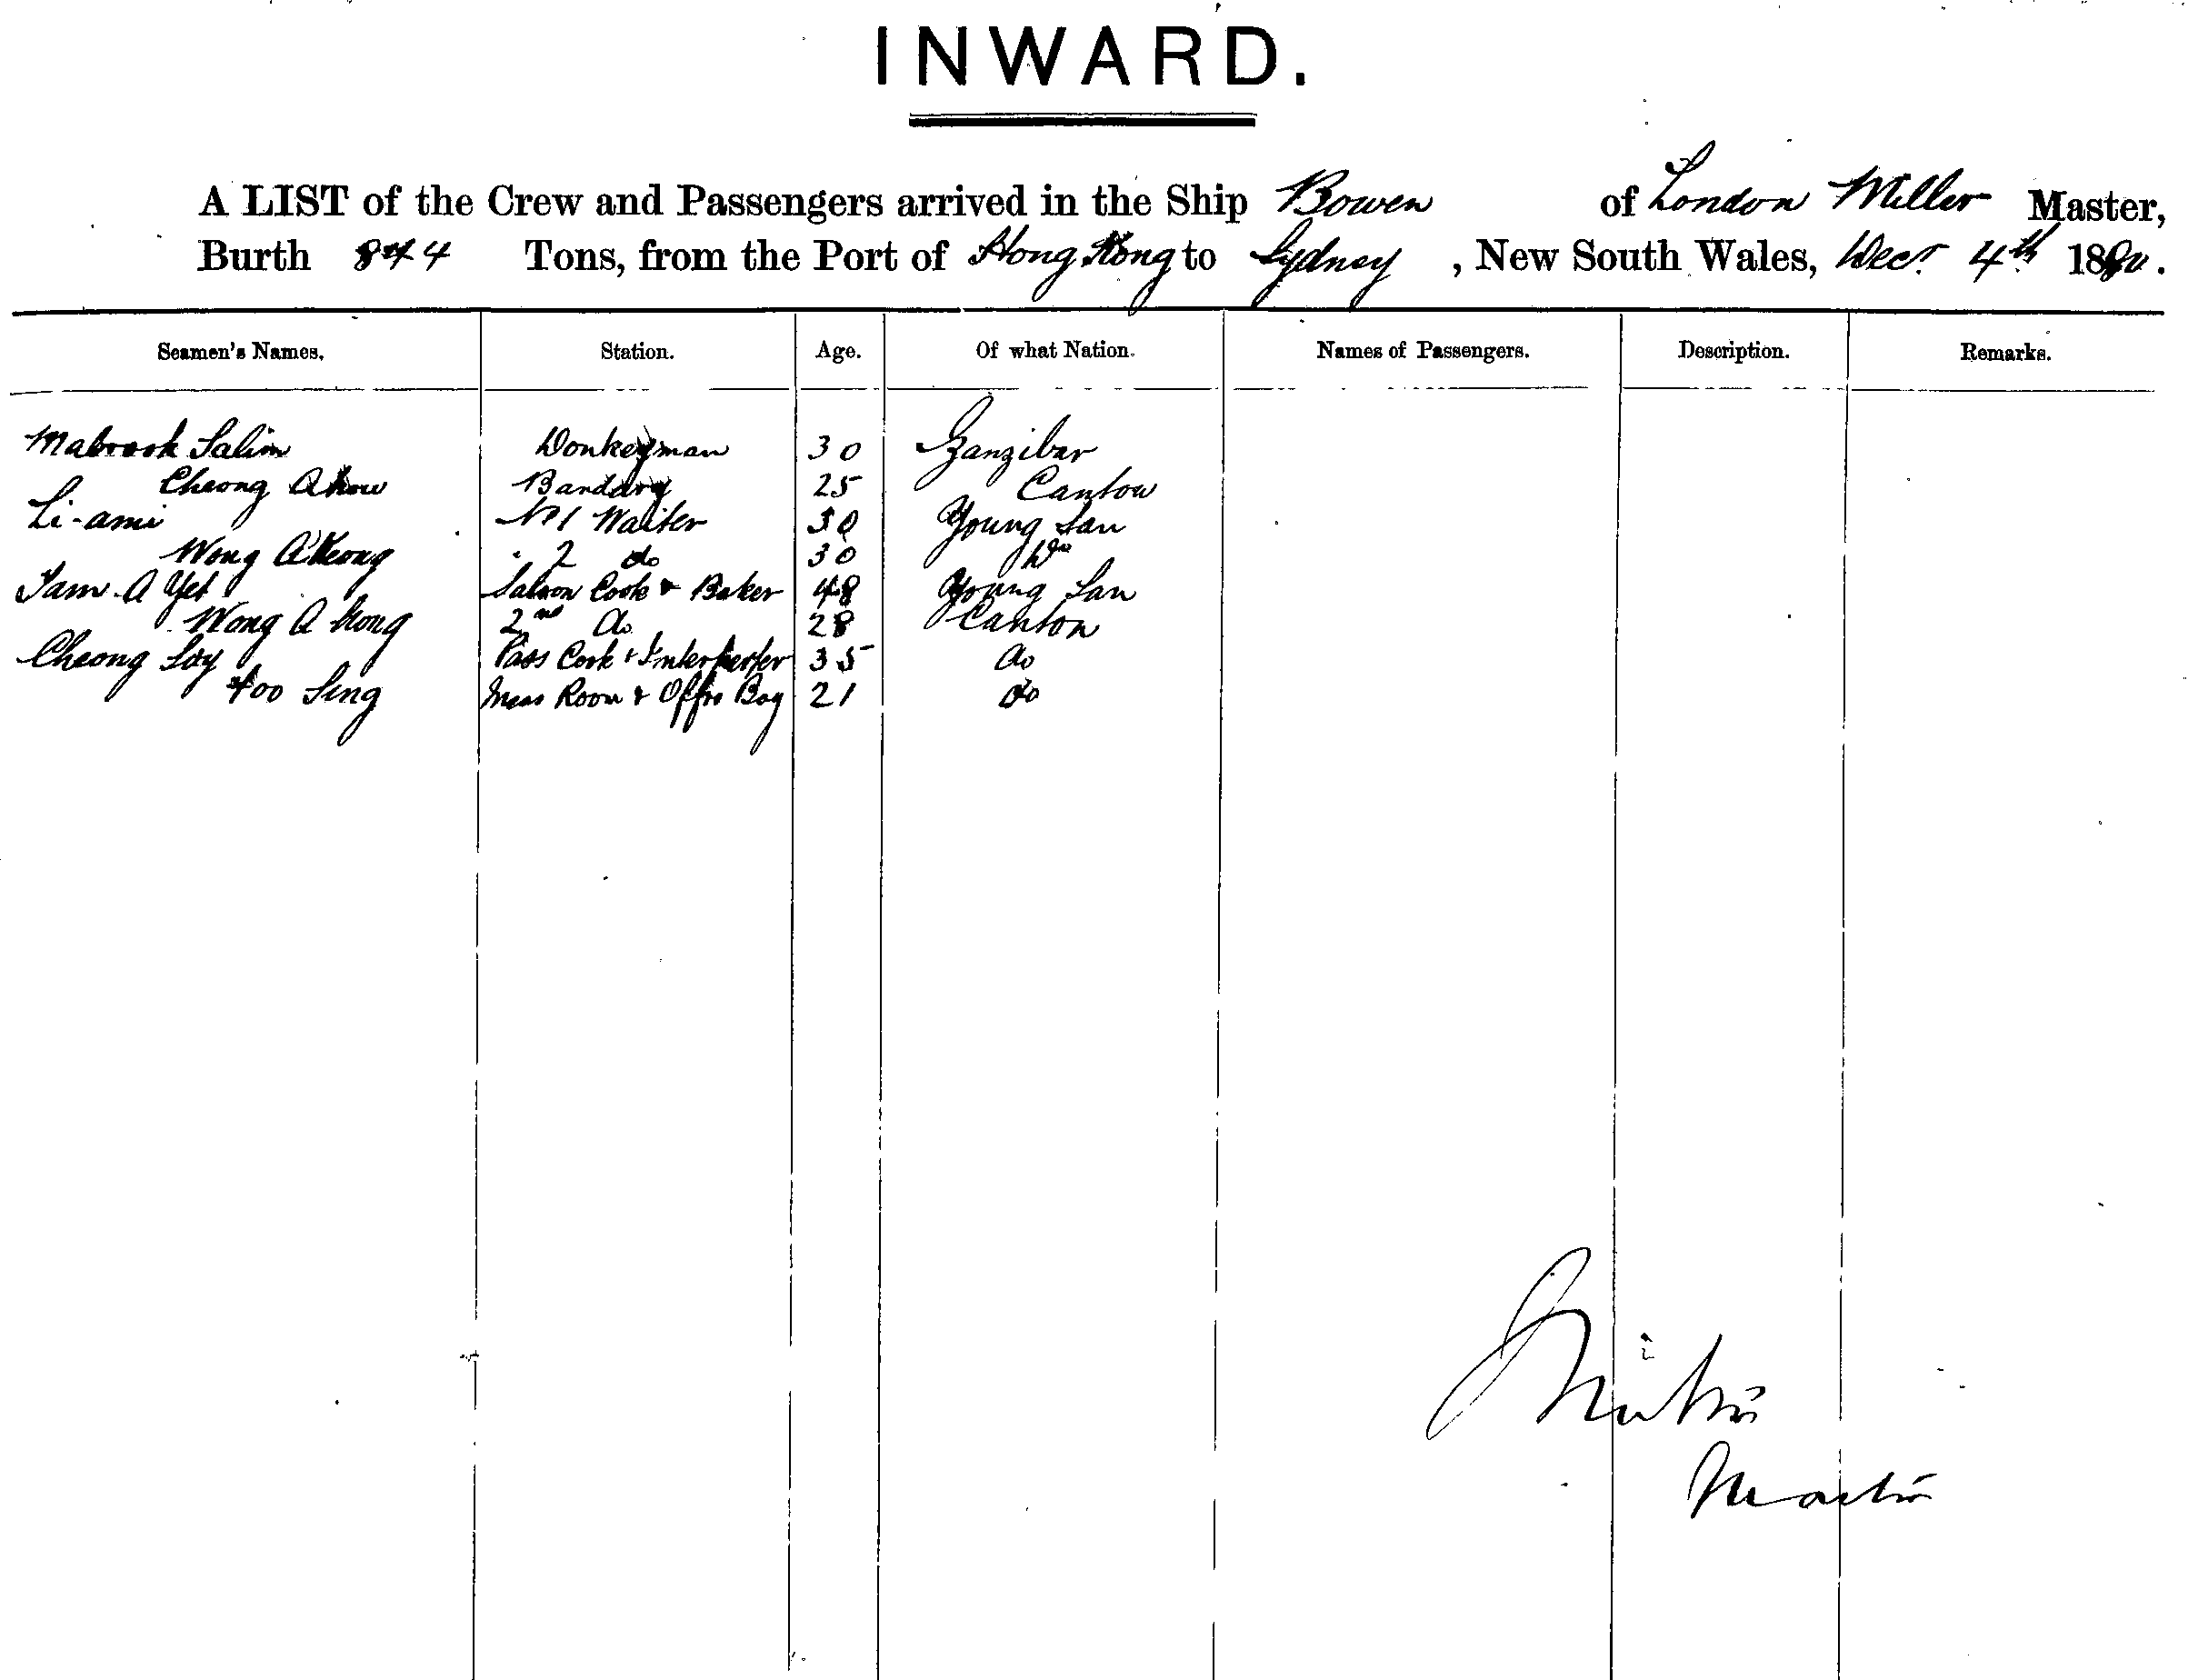 INWARD.
A LIST of the Crew and Passengers arrived in the Ship Bowen of London Miller Master,
Burth 844 Tons, from the Port of Hong Kong to Sydney, New South Wales, Decr 4th 1880.
Seamen's Names. Station. Age. Of what Nation. Names of Passengers. Description. Remarks.
Mabrook Salim Donkeyman 30 Zanzibar
Cheong Bandary 25 Canton
Li-ami No 1 Waiter 30 Young San
Wong 2 do 30 Do
Tam A Yet Saloon Cook & Baker 48 Young San
Wong A Kong 2nd do 28 Canton
Cheong Soy Pass Cook & Interperter 35 do
Foo Sing Mess Room & Offrs Boy 21 do
Master